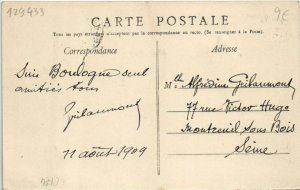 129433
9€
CARTE POSTALE
Tous les pays étrangers n'acceptent pas la correspondance au recto. (Se renseigner à la Poste).
Correspondance
Adresse
Boulogne
amitiés
11 août 1909
Mlle Alfrédine
77 rue Victor Hugo
Montreuil sous Bois
Seine